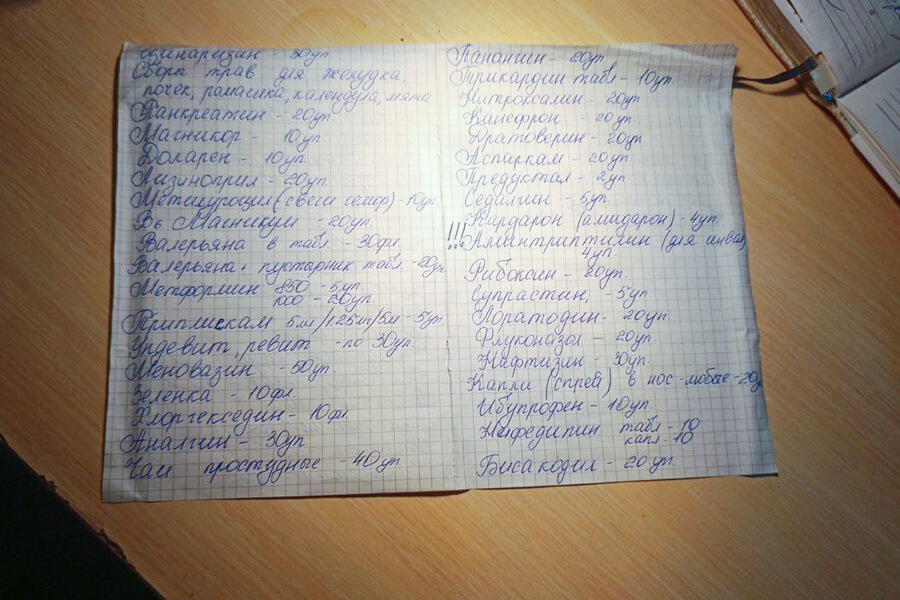 Циннаризин - 30уп
Сборы трав для желудка,
почек, ромашка, календула, мята
Панкреатин - 20уп.
Магникор - 10уп
Доларен - 10уп.
Лизиноприл - 20уп.
(свечи - 10уп.
В6 - 20уп.
Валерьяна в табл. - 30фл.
Валерьяна + пустырник табл. - 20уп
Метформин 850 - 5уп.
1000 - 20уп.
Трипликсам 5м/1.25м/5м - 5уп.
Ундевит, ревит - по 30уп.
Меновазин - 50уп.
Зеленка - 10фл.
Хлоргекседин - 10фл
Аналгин - 30уп
Чаи простудные - 40уп.
Панангин - 20уп.
Трикардин табл - 10уп.
Нитроксалин - 20уп
Канефрон - 20уп
Дротоверин - 20уп
Аспаркам - 20уп
Предуктал - 2уп
Седалгин - 5уп.
Кардарон (амидарон) - 4уп.
!!! Амитриптилин (для инвал)
4уп.
Рибоксин - 20уп.
Супрастин, - 5уп.
Лоратодин - 20уп.
Флуконазол - 20уп.
Нафтизин - 30уп.
Капли (спрей) в нос - любые - 20у
Ибупрофен - 10уп.
Нифедипин табл - 10
капл - 10
Бисакодил - 20уп.